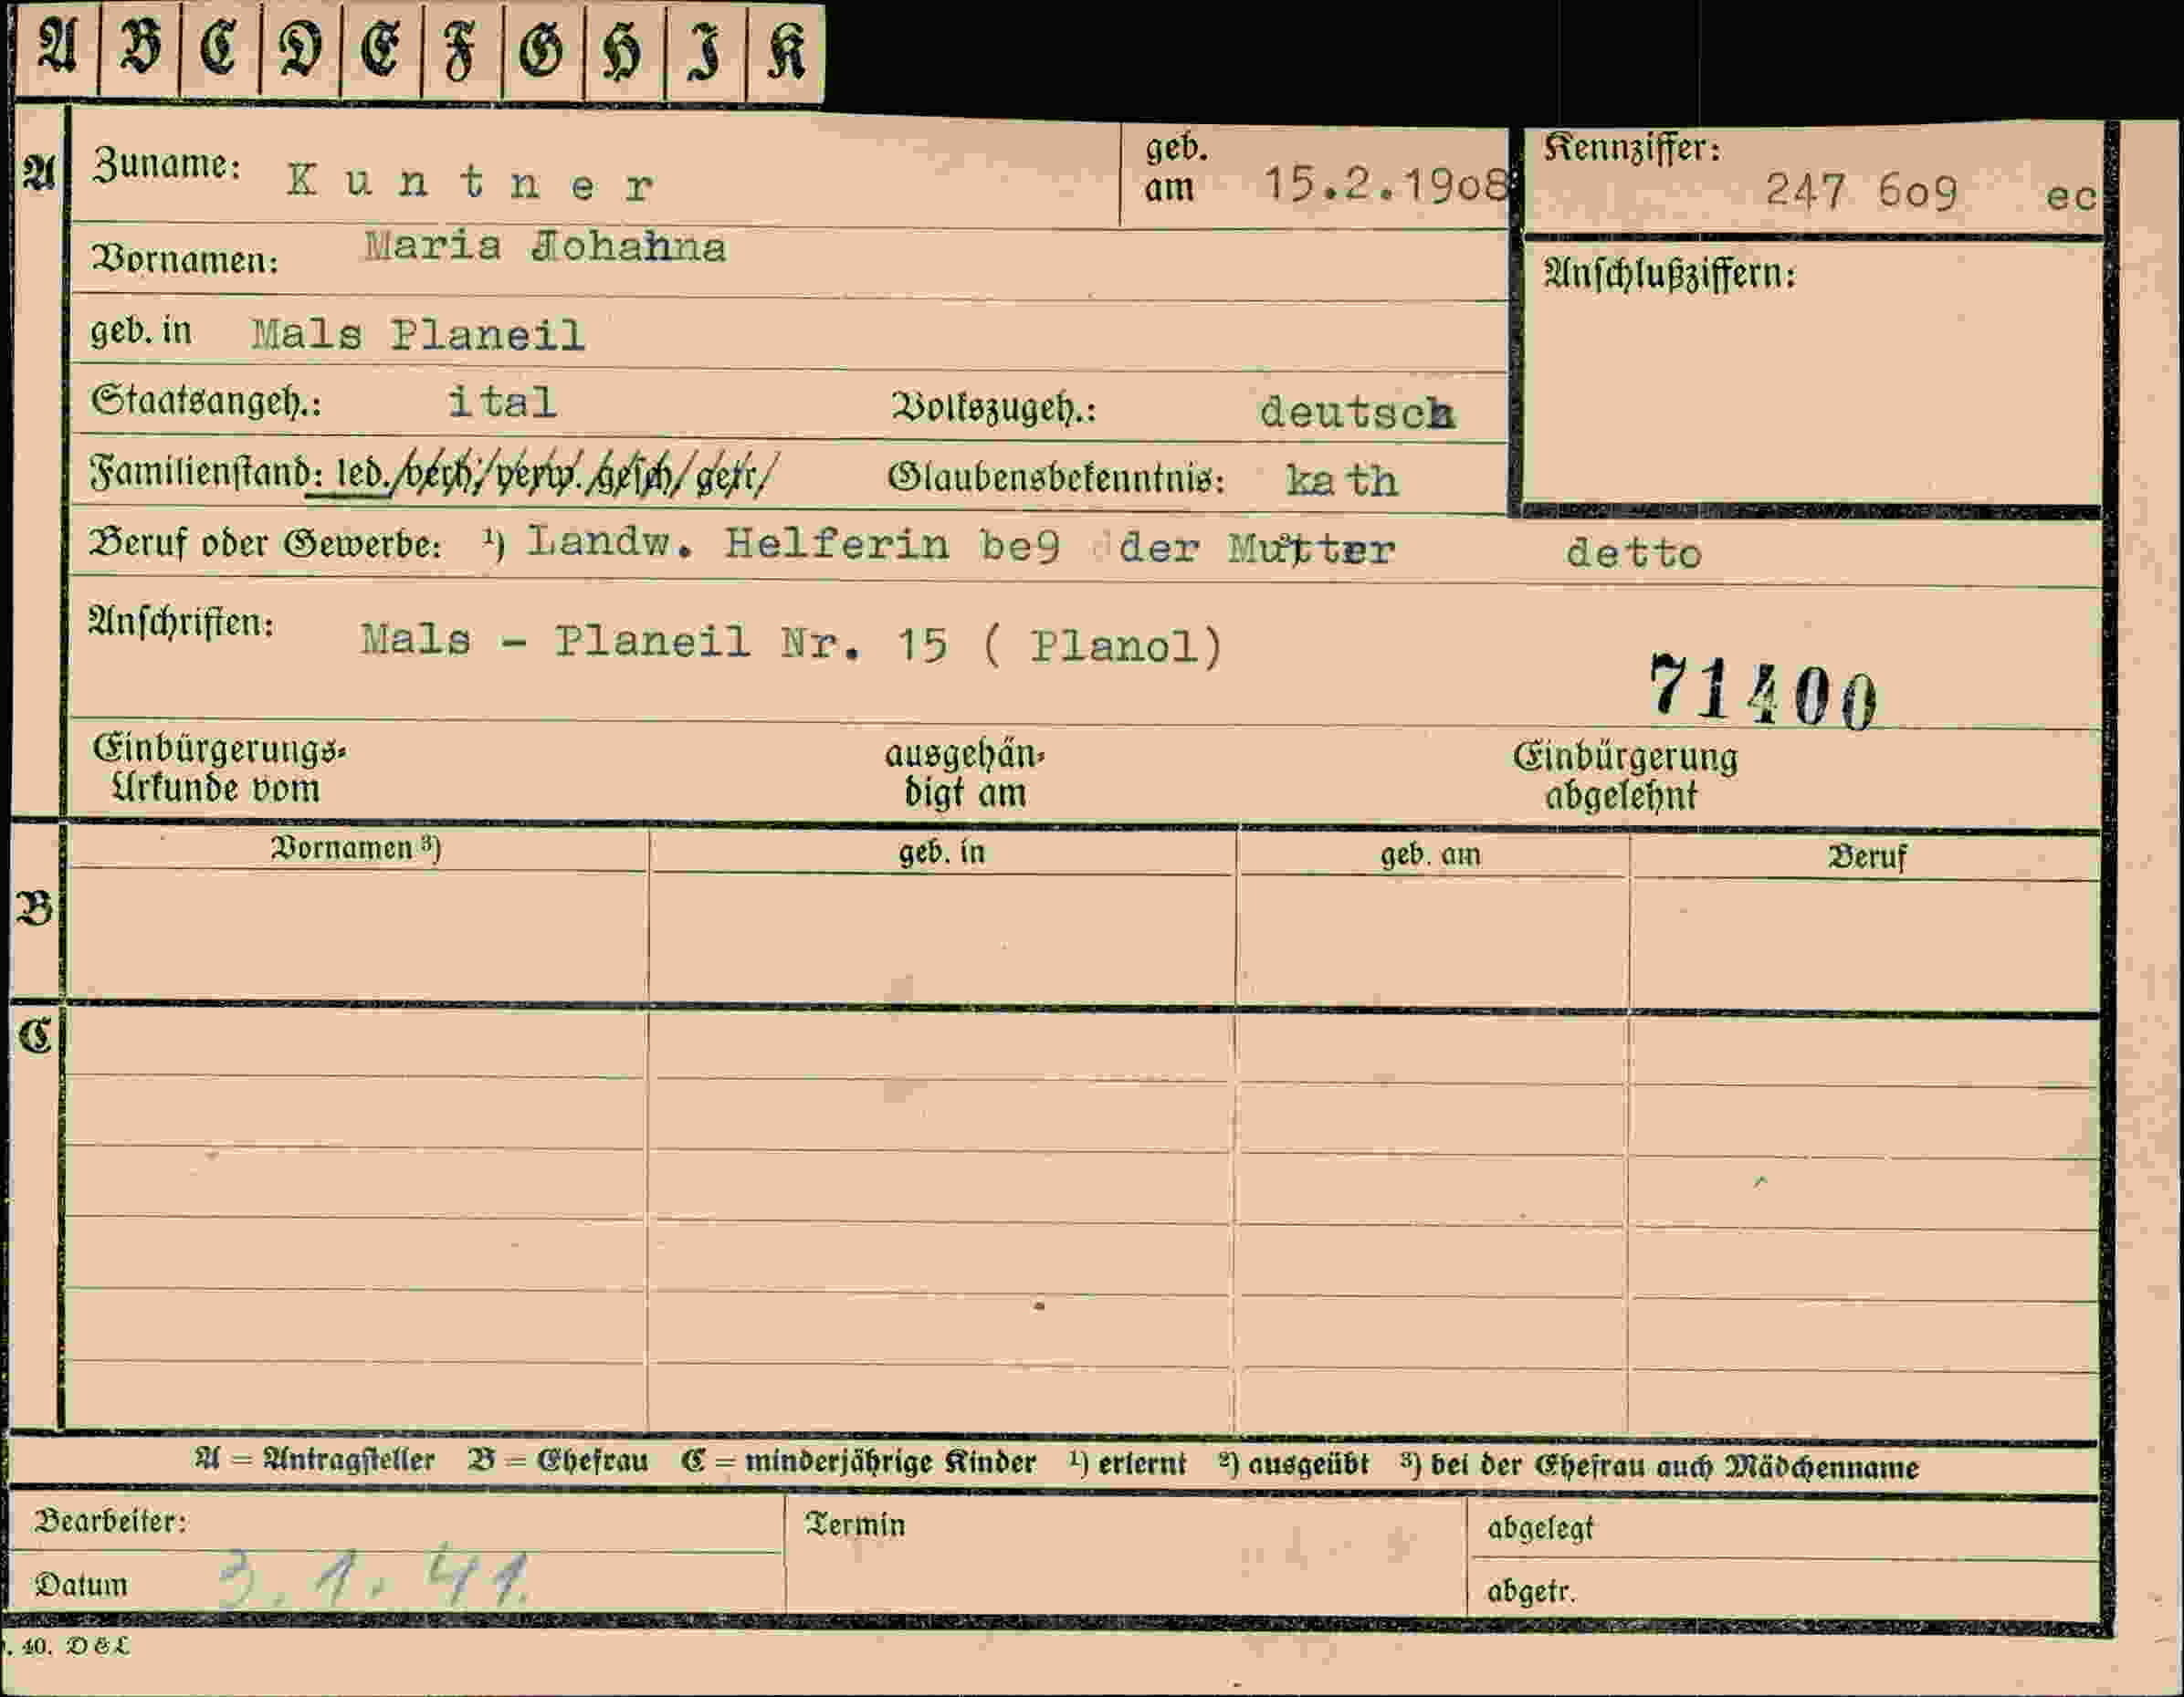 A B C D E F G H I K
A Zuname: Kuntner geb. am 15.2.19o8 Kennziffer: 247 6o9 ec
Vornamen: Maria Johahna Anschlußziffern:
geb. in Mals Planeil
Staatsangeh.: ital Volkszugeh.: deutsch
Familienstand: led./verh./verw./gesch/getr/ Glaubensbekenntnis: kath
Beruf oder Gewerbe: ¹) Landw. Helferin be9 der Mutter detto
Anschriften: Mals - Planeil Nr. 15 ( Planol)
71400
Einbürgerungs-Urkunde vom ausgehändigt am Einbürgerung abgelehnt
Vornamen ³) geb. in geb. am Beruf
B
C
A = Antragsteller B = Ehefrau C = minderjährige Kinder ¹) erlernt ²) ausgeübt ³) bei der Ehefrau auch Mädchenname
Bearbeiter: Termin abgelegt
Datum 3.1.41. abgetr.
. 40. D&L